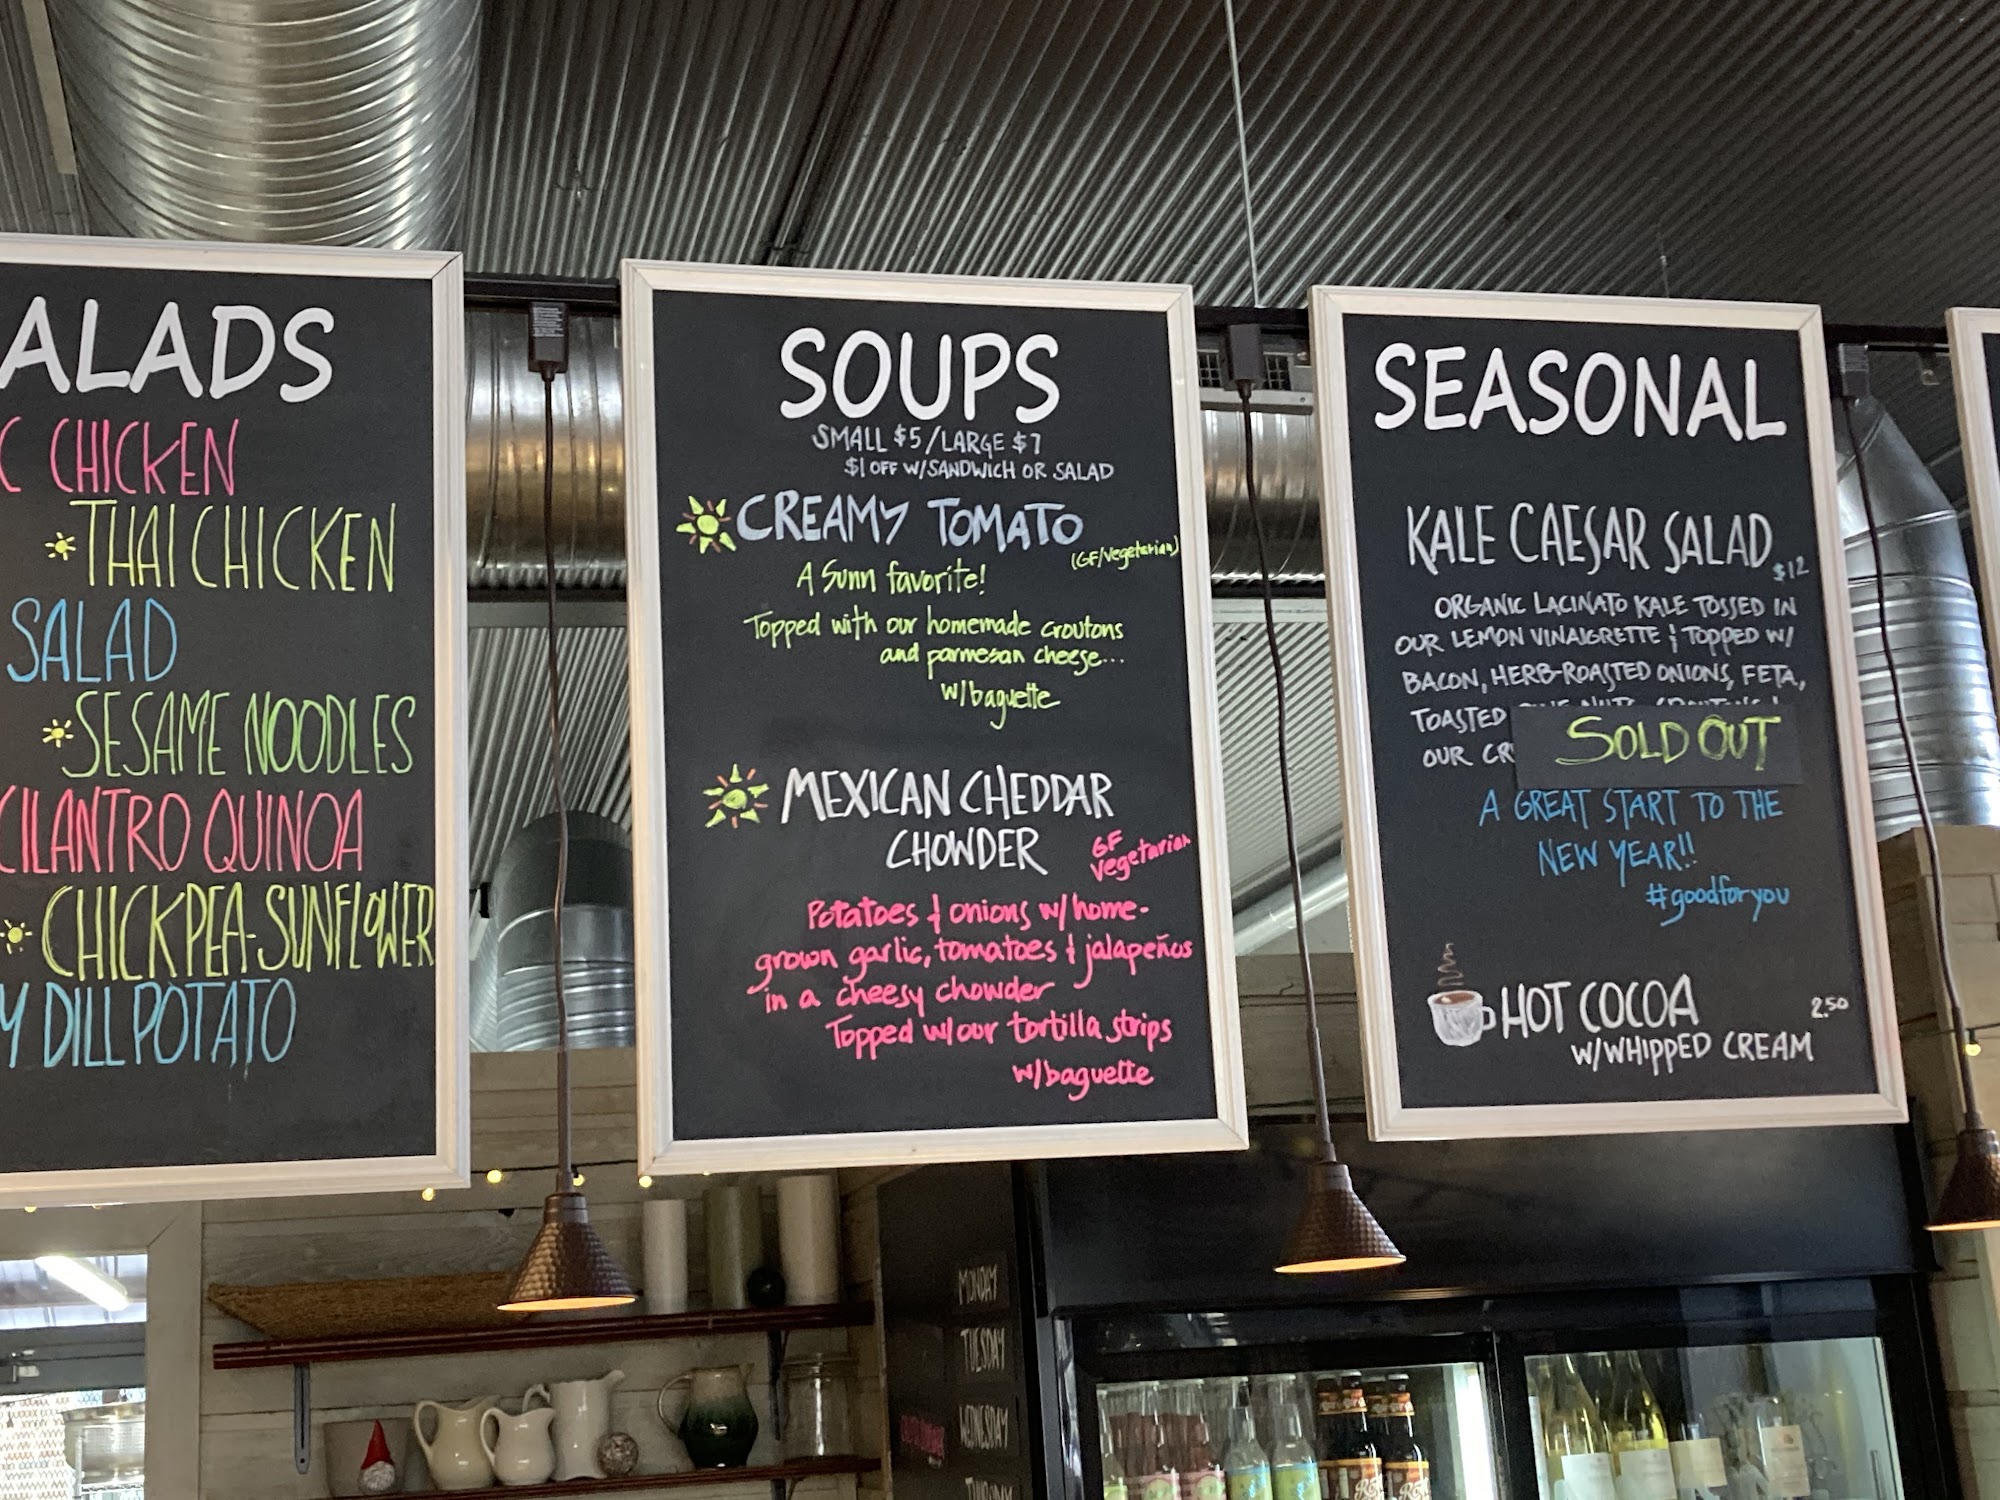 ALADS
C CHICKEN
THAI CHICKEN
SALAD
SESAME NOODLES
CILANTRO QUINOA
CHICKPEA-SUNFLOWER
Y DILL POTATO
SOUPS
SMALL $5/LARGE $7
$1 OFF W/SANDWICH OR SALAD
CREAMY TOMATO
(GF/Vegetarian)
A Sunn favorite!
Topped with our homemade croutons
and parmesan cheese...
w/baguette
MEXICAN CHEDDAR
CHOWDER
GF
Vegetarian
Potatoes & onions w/home-
grown garlic, tomatoes & jalapeños
in a cheesy chowder
Topped w/our tortilla strips
w/baguette
SEASONAL
KALE CAESAR SALAD
$12
ORGANIC LACINATO KALE TOSSED IN
OUR LEMON VINAIGRETTE & TOPPED W/
BACON, HERB-ROASTED ONIONS, FETA,
TOASTED
OUR CR
SOLD OUT
A GREAT START TO THE
NEW YEAR!!
#goodforyou
HOT COCOA
2.50
W/WHIPPED CREAM
MONDAY
TUESDAY
WEDNESDAY